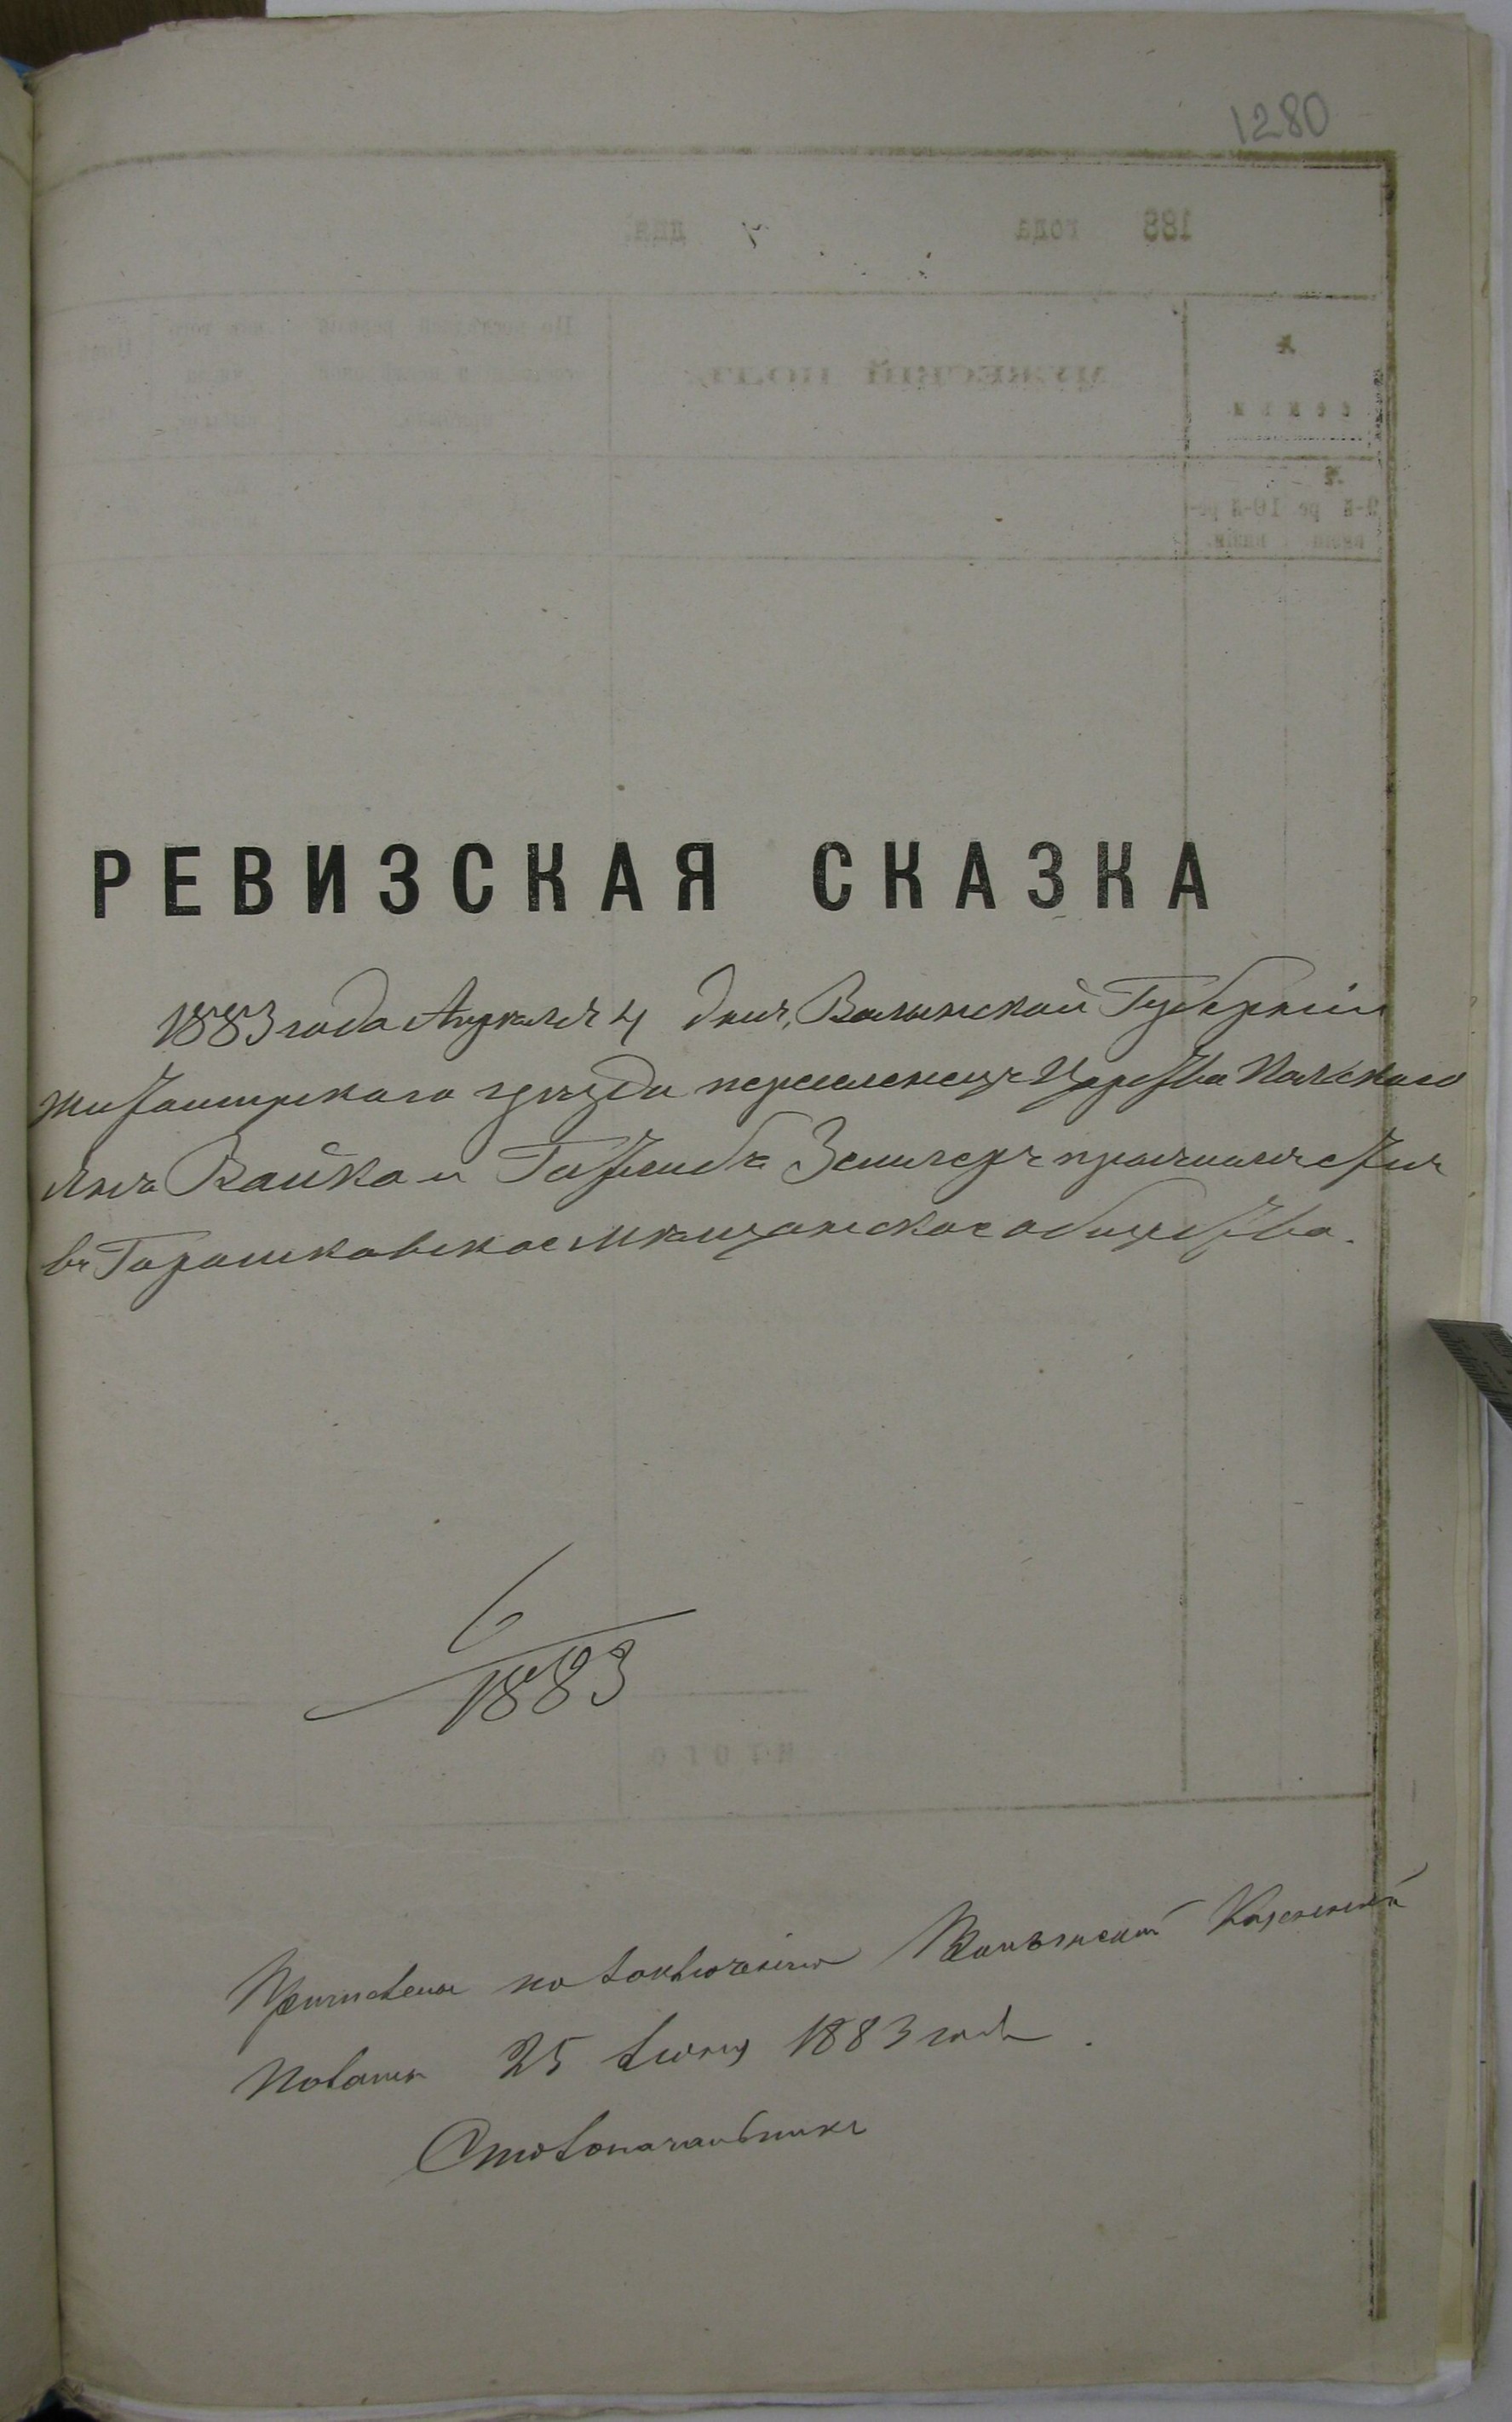 1280
РЕВИЗСКАЯ СКАЗКА
1883 года Апрѣля 4 дня, Волынской Губерніи
Житомирскаго уѣзда переселенецъ Царства Польскаго
Янъ Вайко и Готлибъ Землеръ причислятся
въ Горошковское Мѣщанское общество.
6
1883
Причислены по заключенію Волынской Казенной
Палаты 25 Іюня 1883 года.
Столоначальникъ